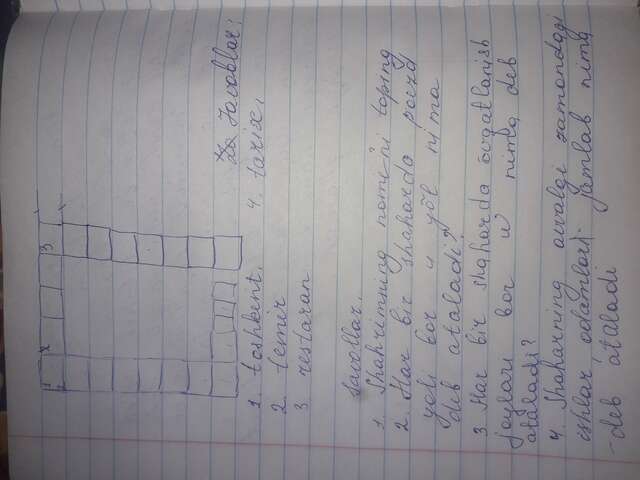 1 2 3
Javoblar:
1. toshkent.
4. tarix.
2. temir
3 restaran
Savollar.
1. Shahrimning nomini toping
2. Har bir shaharda poezd
yoli bor u yöl nima
deb ataladi?
3 Har bir shaharda ovqatlanish
joylari bor u nima deb
ataladi?
4. Shaharning avvalgi zamondagi
ishlar odamlari jamlab nima
deb ataladi